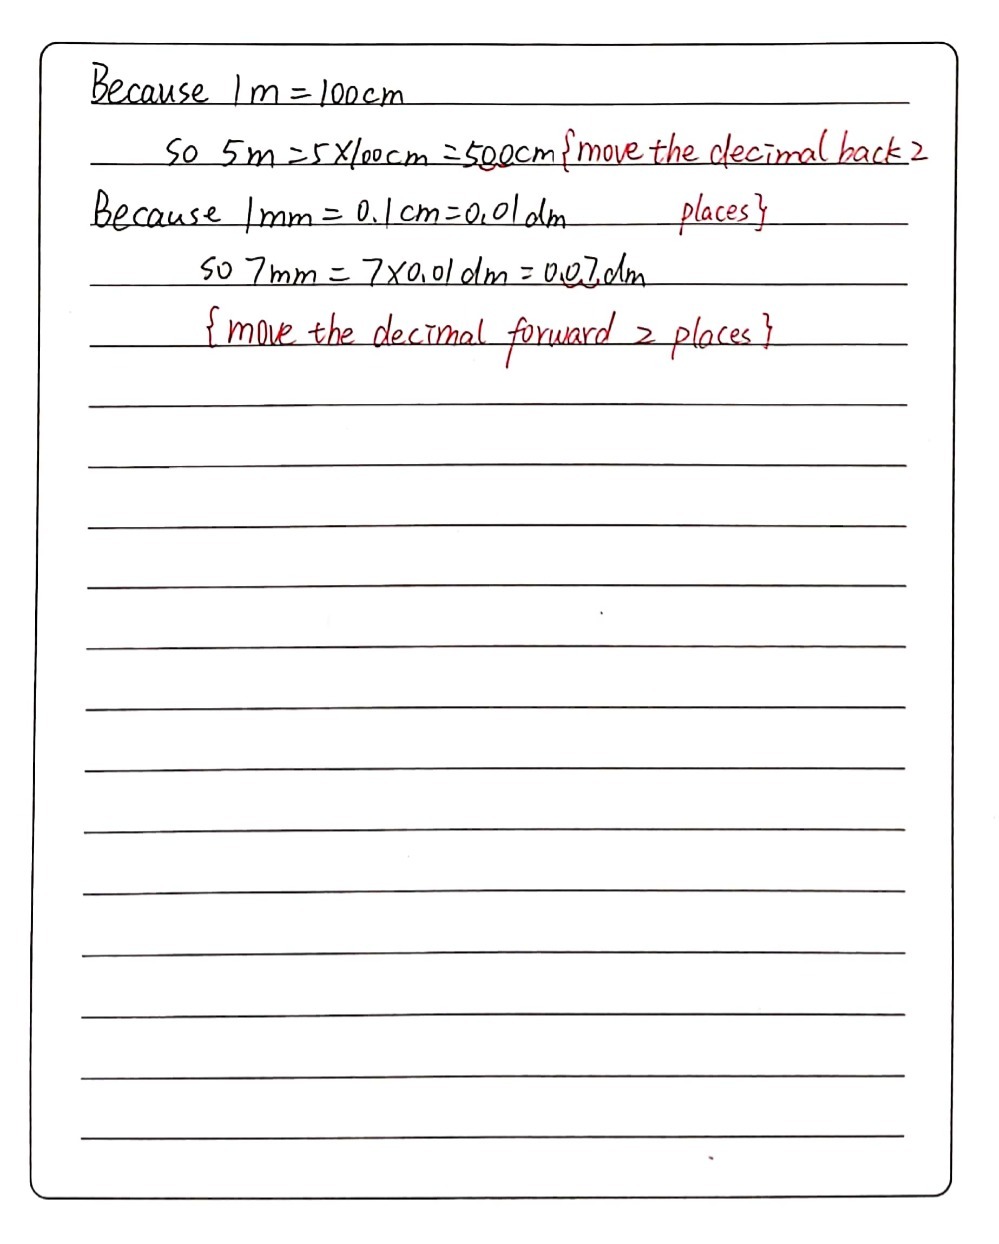 Because 1m = 100cm
so 5m = 5×100cm = 500cm {move the decimal back 2
places}
Because 1mm = 0.1cm = 0.01dm
so 7mm = 7×0.01dm = 0.07dm
{move the decimal forward 2 places}